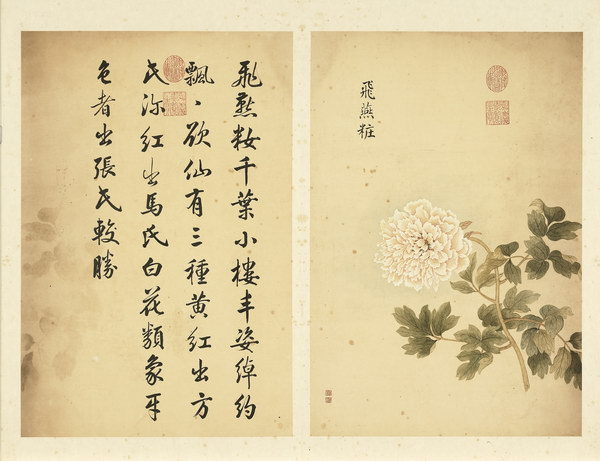 飛燕粧
飛燕粧千葉小樓丰姿綽約
飄〻欲仙有三種黃紅出方
氏深紅出馬氏白花類象牙
色者出張氏較勝